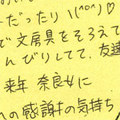 ーだったり \(^o^)♡
で文房具をそろえて
んびりしてて、友達
来年 奈良女に
への感謝の気持ち